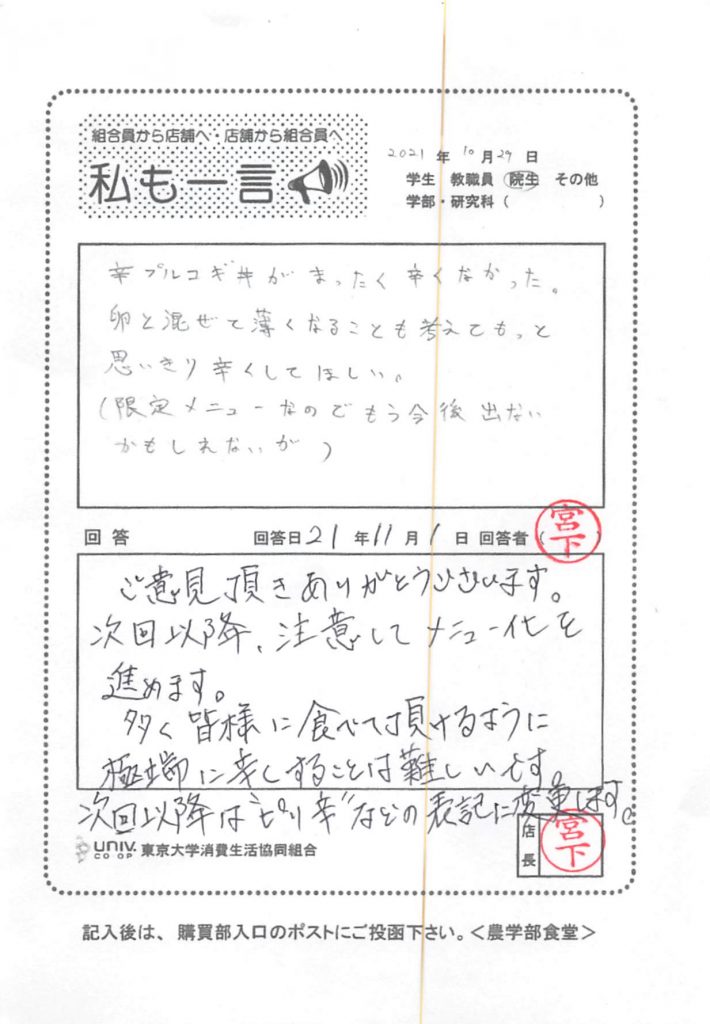 組合員から店舗へ・店舗から組合員へ
私も一言
2021 年 10 月 29 日
学生 教職員 院生 その他
学部・研究科( )
辛プルコギ丼がまったく辛くなかった。
卵と混ぜて薄くなることも考えてもっと
思いきり辛くしてほしい。
(限定メニューなのでもう今後出ない
かもしれないが)
回答 回答日 21 年 11 月 1 日 回答者( 宮下 )
ご意見頂きありがとうございます。
次回以降、注意してメニュー化を
進めます。
多く皆様に食べて頂けるように
極端に辛くすることは難しいです。
次回以降は"ピリ辛"などの表記に変更します。
店長 宮下
UNIV. CO-OP 東京大学消費生活協同組合
記入後は、購買部入口のポストにご投函下さい。<農学部食堂>